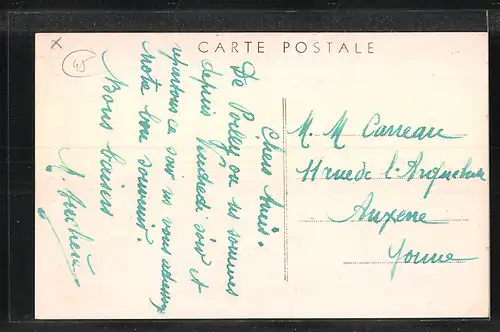 x
45
CARTE POSTALE
Chers Amis.
De Poilley ou ns sommes
depuis Vendredi soir et
repartons ce soir ns vous adressons
notre bon souvenir.
Bons baisers
M. M Carreau
11 rue de l'Arquebuse
Auxerre
Yonne